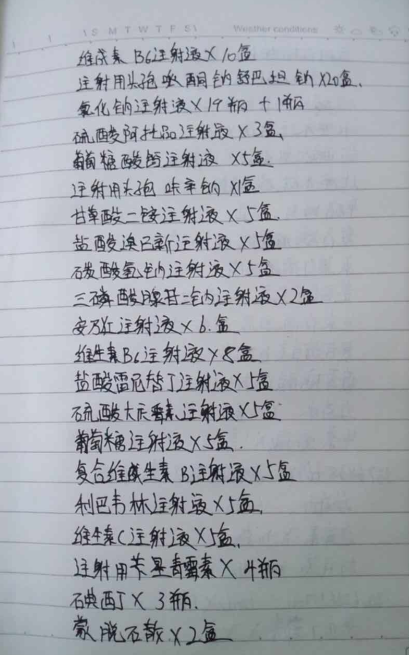 S M T W T F S
Weather conditions
维生素 B6注射液×10盒
注射用头孢哌酮钠舒巴坦钠×20盒.
氯化钠注射液×19瓶+1瓶
硫酸阿托品注射液×3盒、
葡萄糖酸钙注射液 ×5盒.
注射用头孢 呋辛钠×1盒
甘草酸二铵注射液×5盒.
盐酸溴己新注射液×5盒
碳酸氢钠注射液×5盒
三磷酸腺苷二钠注射液×2盒
安乃近注射液×6.盒
维生素B6注射液×8盒
盐酸雷尼替丁注射液×5盒
硫酸庆大霉素注射液×5盒
葡萄糖注射液×5盒.
复合维生素B注射液×5盒
利巴韦林注射液×5盒.
维生素C注射液×5盒.
注射用苄星青霉素×4瓶
碘西丁× 3瓶.
蒙脱石散×2盒